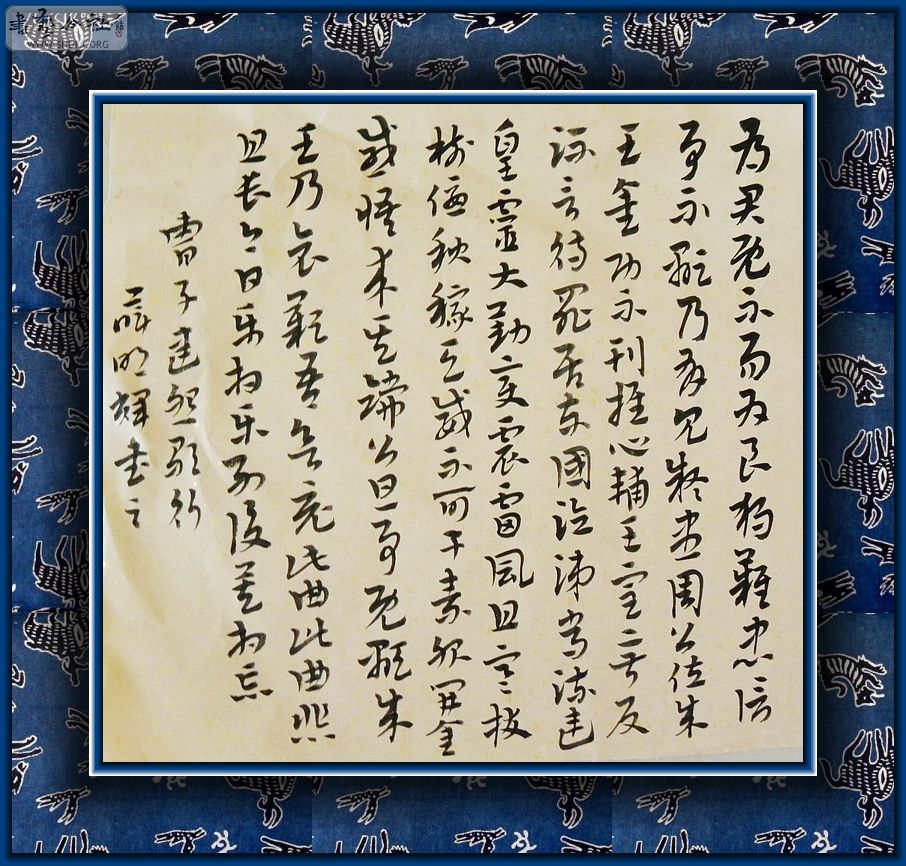 為君既不易為良獨難忠信
事不顯乃有見疑患周公佐成
王金功不刊推心輔王室二叔反
流言待罪居東國泣涕常流連
皇靈大動變震雷風且寒拔
樹偃秋稼天威不可干素服開金
感悟求其端公旦事既顯成
王乃哀歎吾欲竟此曲此曲悲
且長今日樂相樂別後莫相忘
曹子建怨歌行
明輝書之